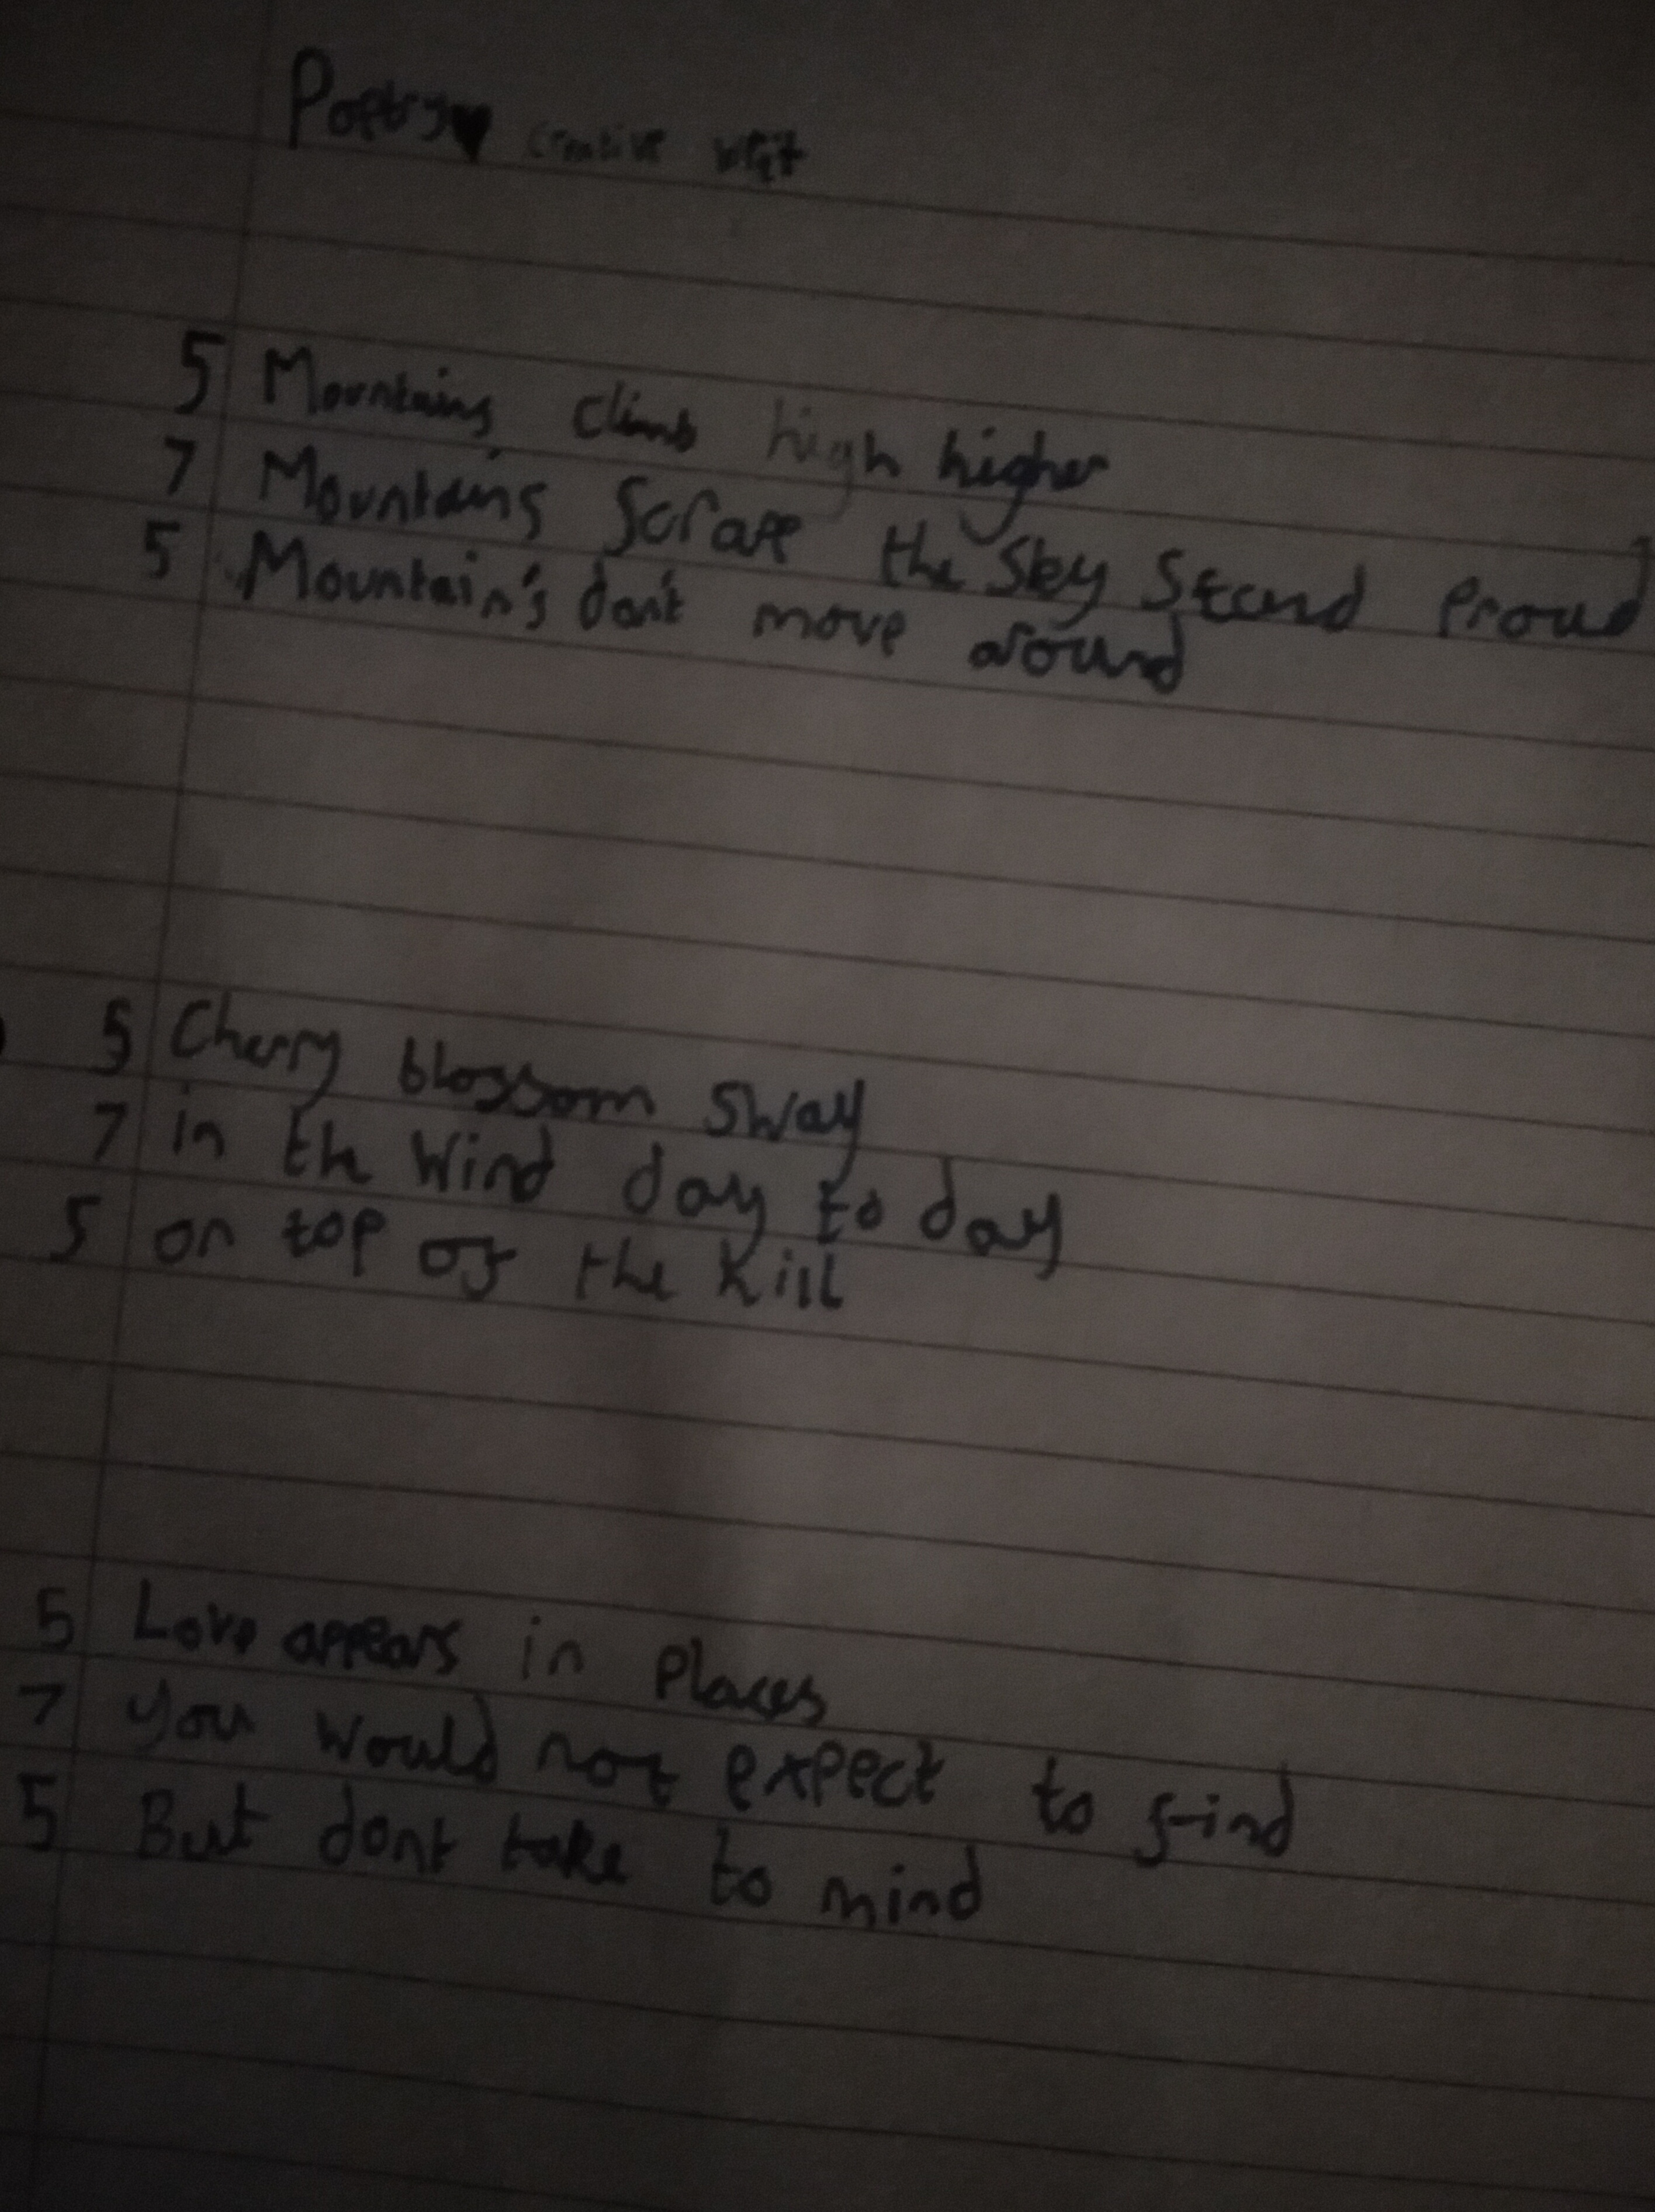 Poetry creative writ
5 Mountains climb high higher
7 Mountains Scrape the Sky Stand Proud
5 Mountain's don't move around
5 Cherry blossom sway
7 in the Wind day to day
5 on top of the hill
5 Love appears in Places
7 You would not expect to find
5 But dont take to mind